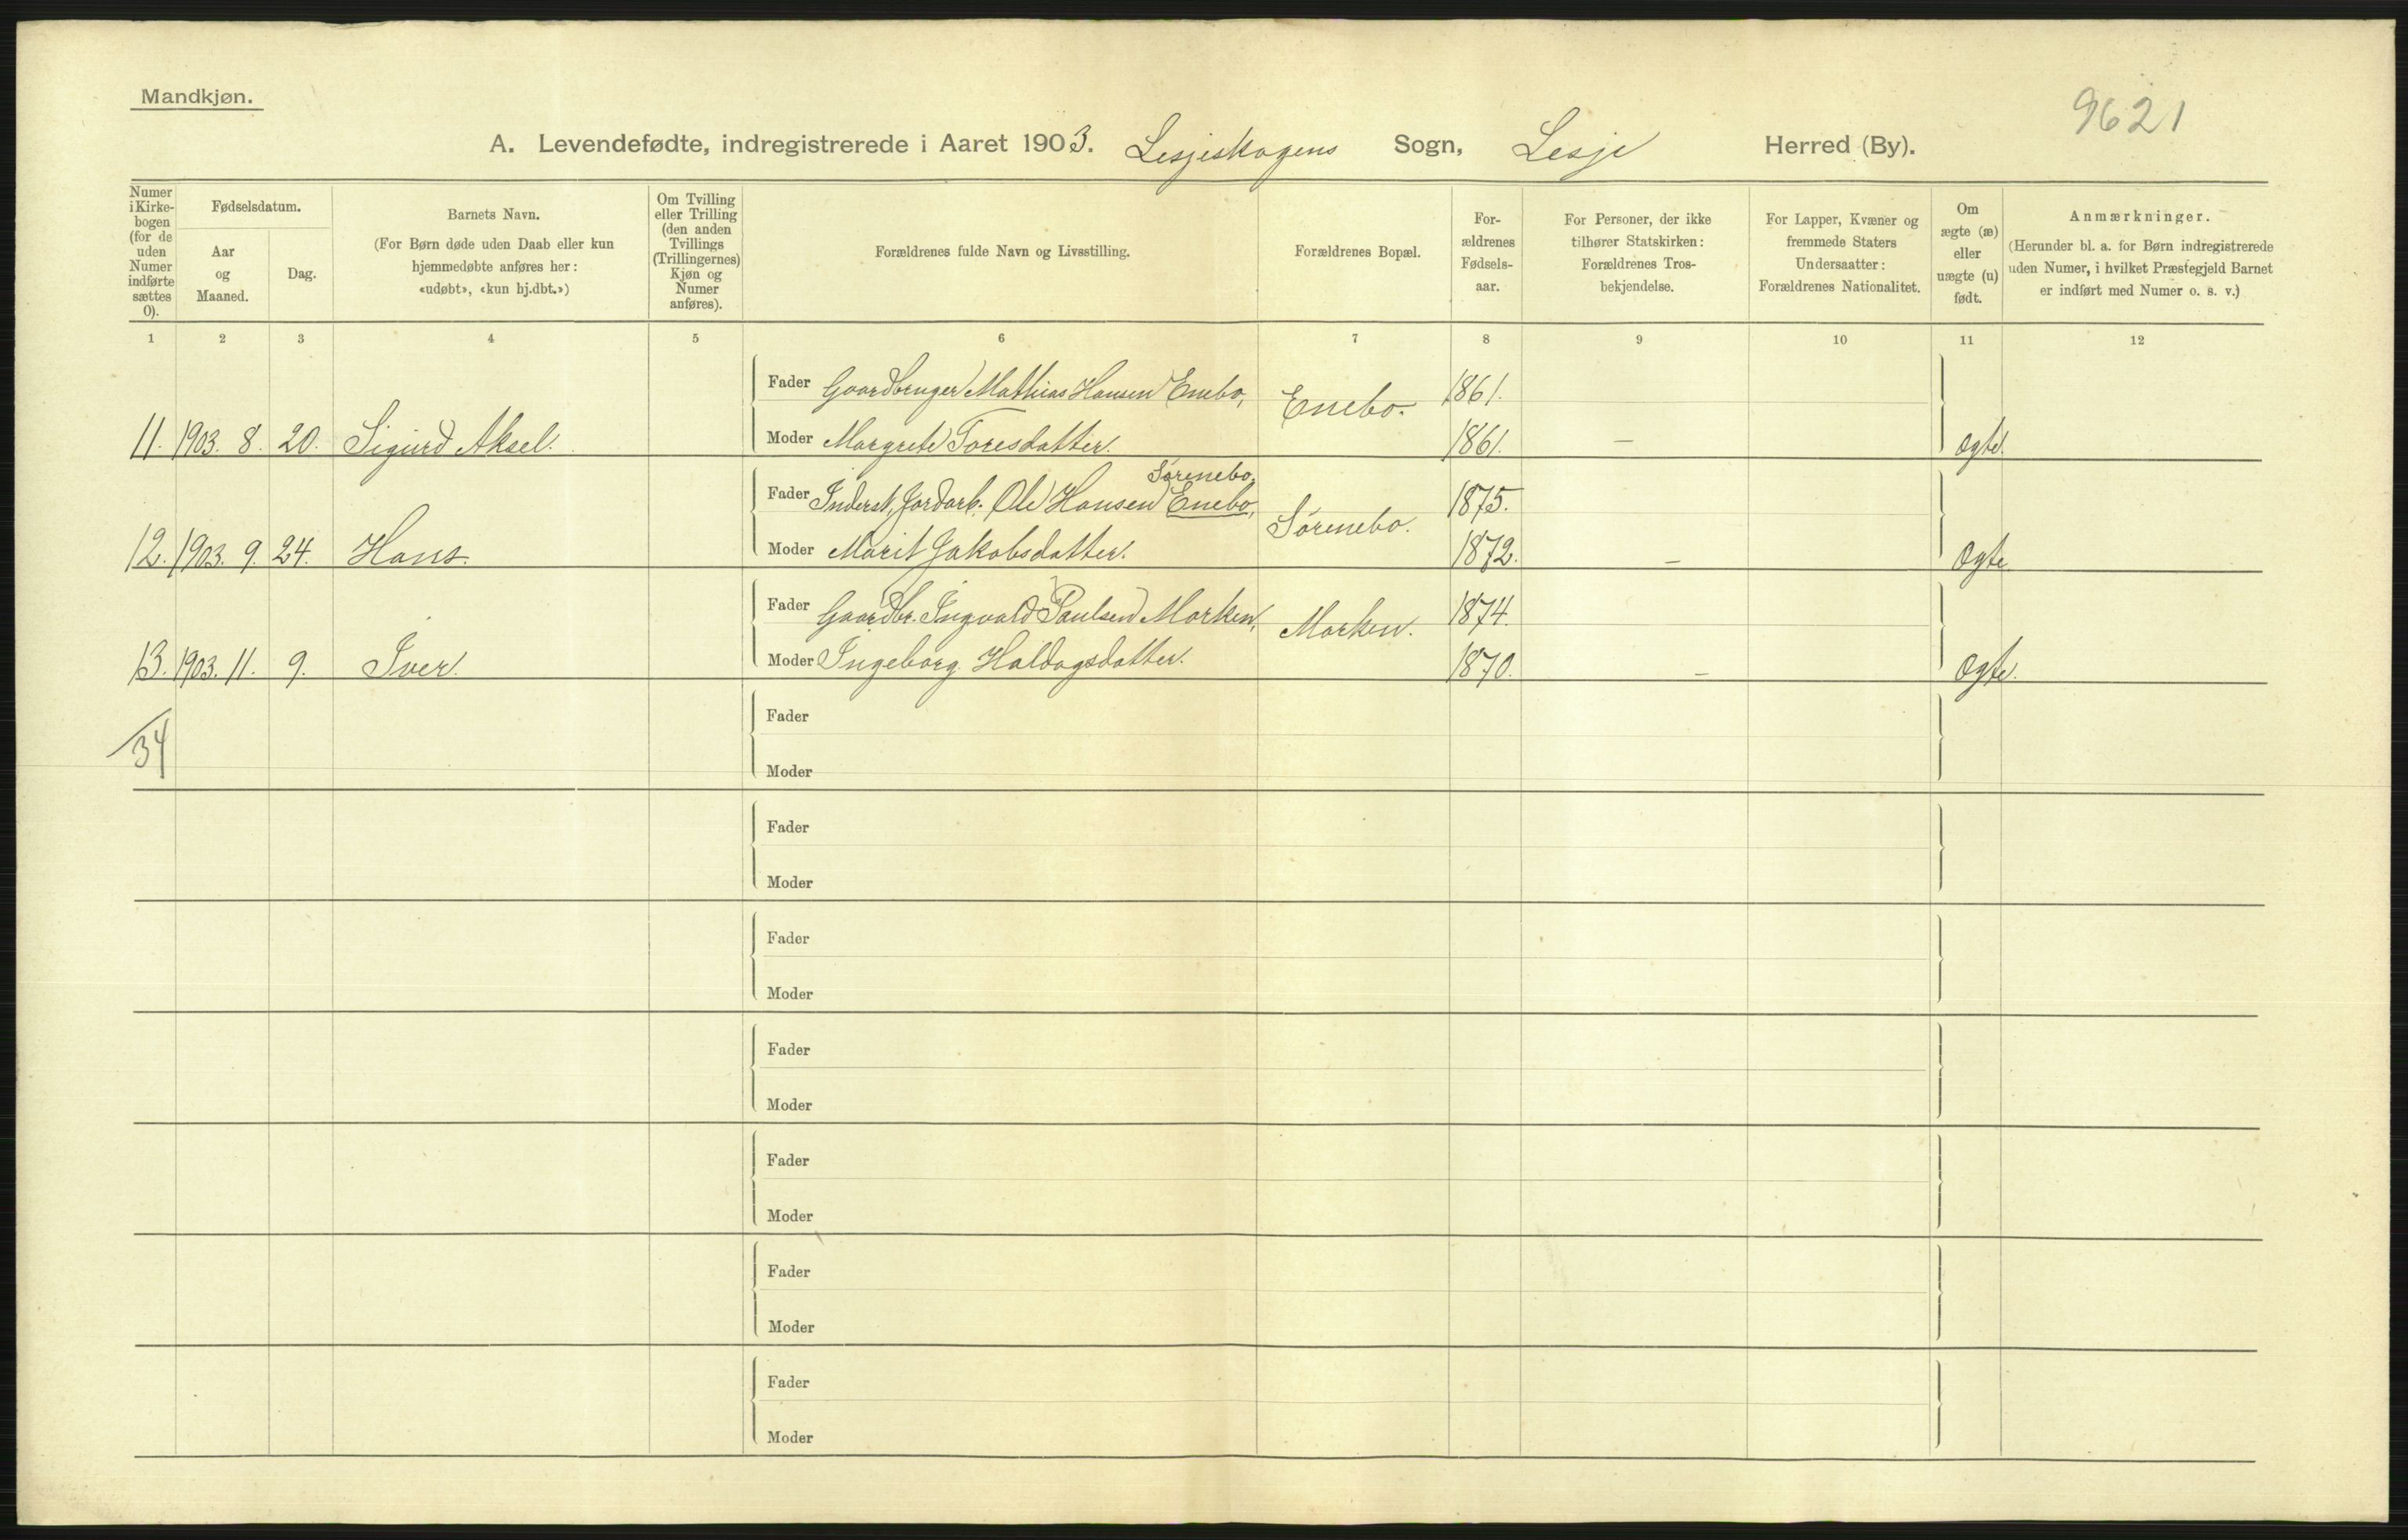 Mandkjøn.
9621
A. Levendefødte, indregistrerede i Aaret 1903. Lesjeskogens Sogn, Lesje Herred (By).
Numer
i Kirke-
bogen
(for de
uden
Numer
indførte
sættes
0).
Fødselsdatum.
Aar
og
Maaned.
Dag.
Barnets Navn.
(For Børn døde uden Daab eller kun
hjemmedøbte anføres her:
«udøbt», «kun hj.dbt.»)
Om Tvilling
eller Trilling
(den anden
Tvillings
(Trillingernes)
Kjøn og
Numer
anføres).
Forældrenes fulde Navn og Livsstilling.
Forældrenes Bopæl.
For-
ældrenes
Fødsels-
aar.
For Personer, der ikke
tilhører Statskirken:
Forældrenes Tros-
bekjendelse.
For Lapper, Kvæner og
fremmede Staters
Undersaatter:
Forældrenes Nationalitet.
Om
ægte (æ)
eller
uægte (u)
født.
Anmærkninger.
(Herunder bl. a. for Børn indregistrerede
uden Numer, i hvilket Præstegjeld Barnet
er indført med Numer o. s. v.)
1 2 3 4 5 6 7 8 9 10 11 12
Fader Gaardbruger Mathias Hansen Enebo, Enebo. 1861.
11. 1903. 8. 20. Sigurd Aksel. Moder Margrete Toresdatter. 1861. — Ægte.
Sørenebo,
Fader Inderst, Jordarb. Ole Hansen Enebo, Sørenebo. 1875.
12. 1903. 9. 24. Hans. Moder Marit Jakobsdatter. 1872. — Ægte
Fader Gaardbr. Ingvald Paulsen Morken, Morken. 1874.
13. 1903. 11. 9. Iver. Moder Ingeborg Haldogsdatter. 1870. — Ægte.
Fader
34
Moder
Fader
Moder
Fader
Moder
Fader
Moder
Fader
Moder
Fader
Moder
Fader
Moder